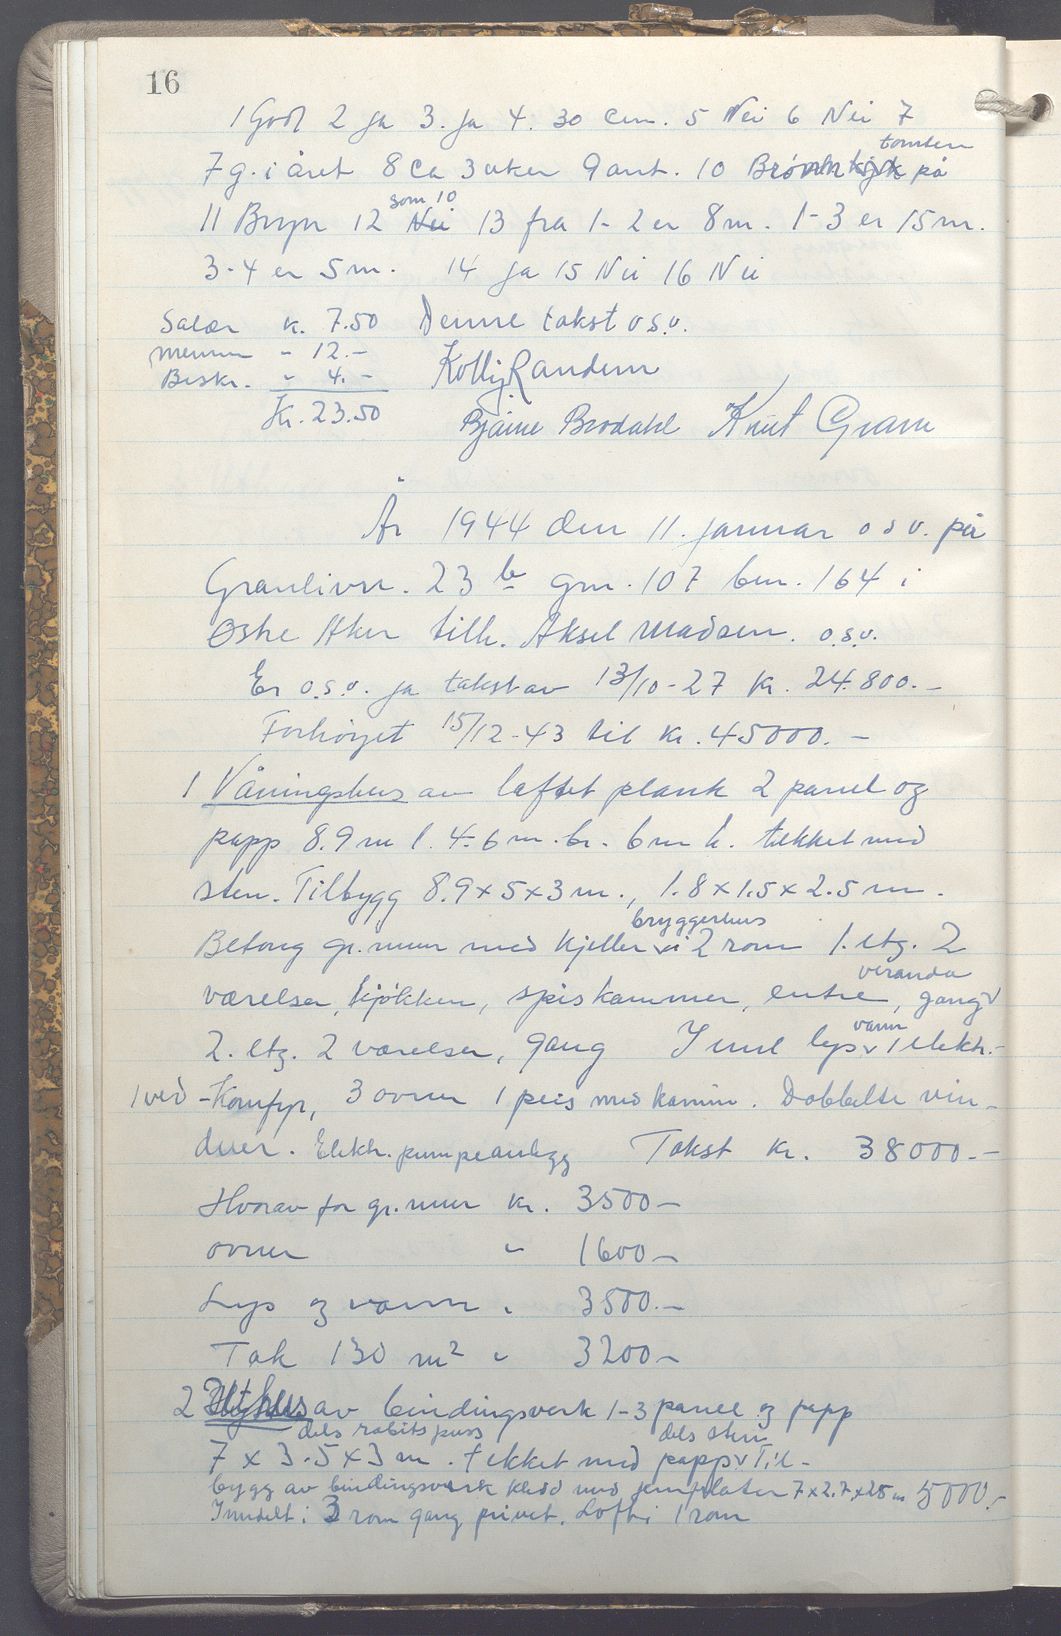 16
1 Godt 2 ja 3. ja 4. 30 cm. 5 Nei 6 Nei 7
tomten
7 g. i året 8 Ca 3 uker 9 ant. 10 Brønn på
som 10
11 Bryn 12 Nei 13 fra 1-2 er 8 m. 1-3 er 15 m.
3-4 er 5 m. 14 ja 15 Nei 16 Nei
Salær k. 7.50 Denne takst o s.v.
menn - 12.-
Beskr. - 4.- Kolbj. Randem
Kr. 23.50
Bjarne Brodahl Knut Gram
År 1944 den 11. januar o s v. på
Granlivn. 23 b gnr. 107 bnr. 164 i
Østre Aker tilh. Aksel Madsen. o.s.v.
Er o.s.v. ja takst av 13/10-27 kr. 24.800.-
Forhøyet 15/12-43 til kr. 45000.-
1 Våningshus av laftet plank 2 panel og
papp 8.9 m l. 4.6 m. br. 6 m h. tekket med
sten. Tilbygg 8.9 x 5 x 3 m., 1.8 x 1.5 x 2.5 m.
bryggerhus
Betong gr.mur med kjeller v i 2 rom 1. etg. 2
veranda
værelser, kjøkken, spiskammer, entre, gang v
vann
2. etg. 2 værelser, gang Innl lys v 1 elektr.-
1 ved - Komfyr, 3 ovner 1 peis med kamin. Dobbelte vin-
duer. Elektr. pumpeanlegg Takst kr. 38000.-
Hvorav for gr.mur kr. 3500-
ovner " 1600-
Lys og vann " 3500.-
Tak 130 m² " 3200-
2 Uthus av bindingsverk 1-3 panel og papp
dels rabitspuss dels sten
7 x 3.5 x 3 m. tekket med papp v Til-
bygg av bindingsverk kledd med jernplater 7 x 2.7 x 25 m 5000.-
Inndelt i 3 rom gang privet. Loft i 1 rom